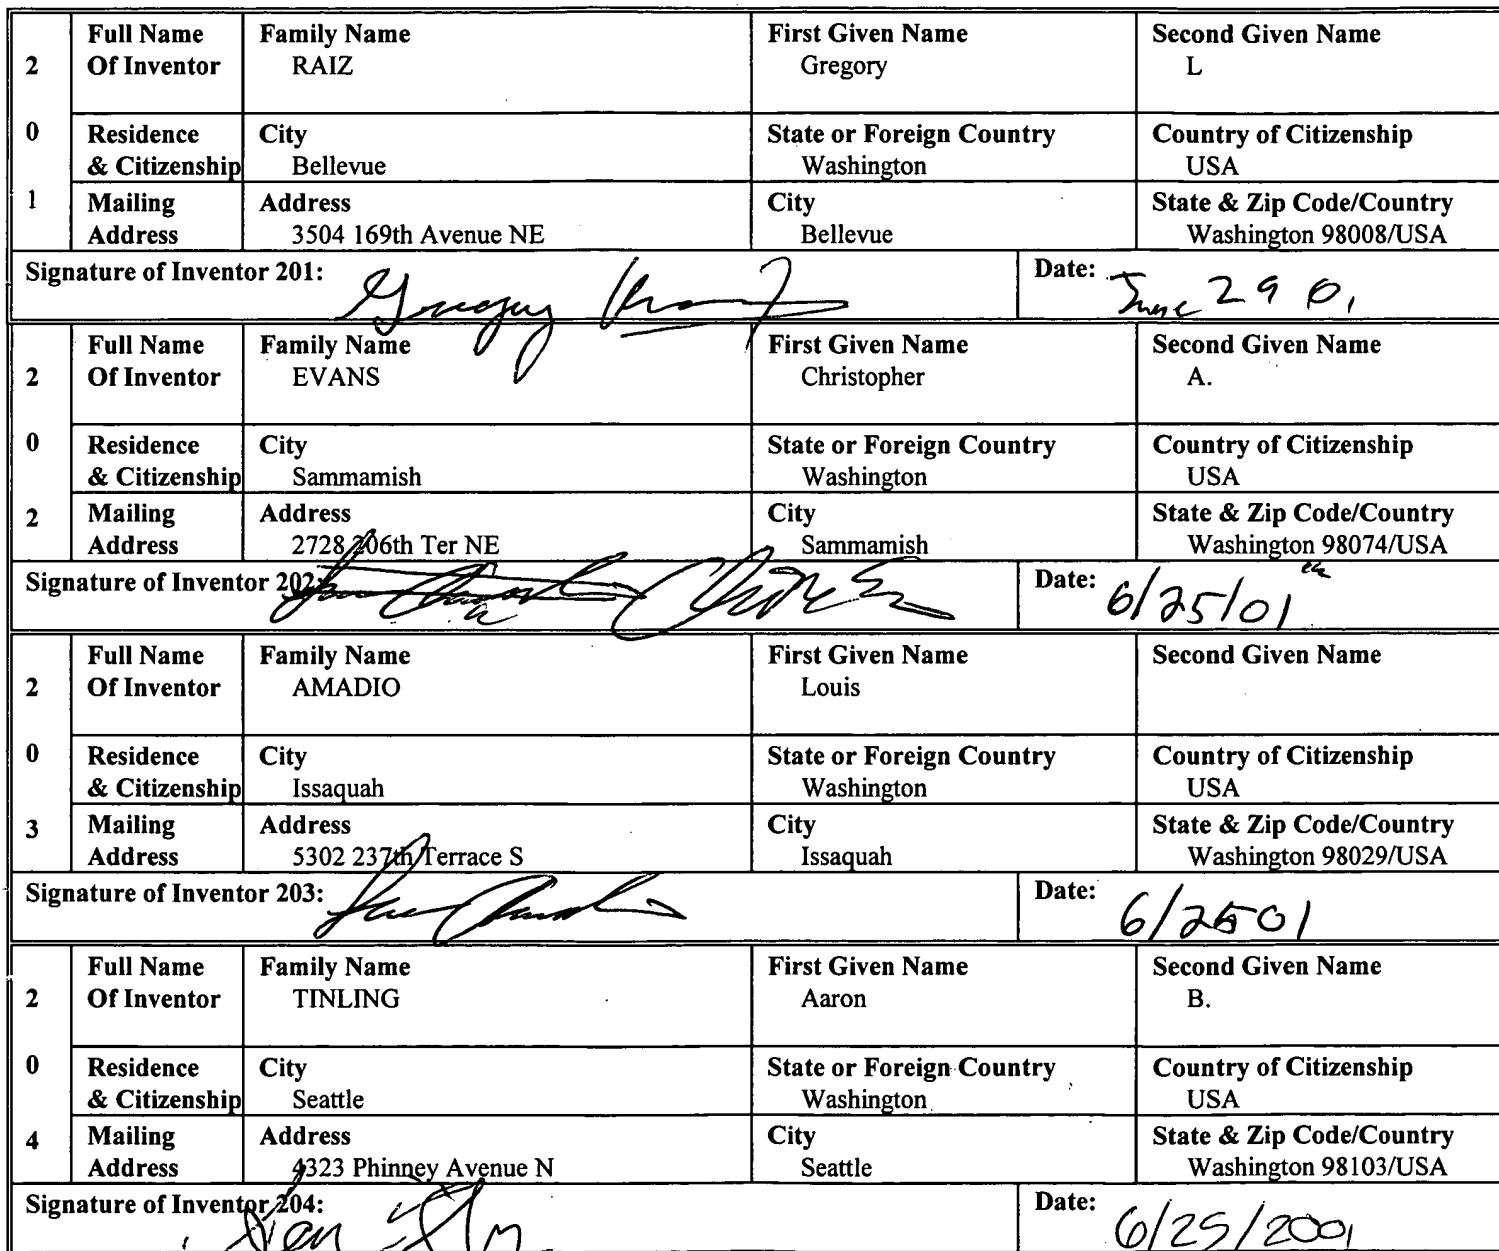 2 Full Name Of Inventor Family Name RAIZ First Given Name Gregory Second Given Name L
0 Residence & Citizenship City Bellevue State or Foreign Country Washington Country of Citizenship USA
1 Mailing Address Address 3504 169th Avenue NE City Bellevue State & Zip Code/Country Washington 98008/USA
Signature of Inventor 201: Gregory Date: June 29 01
2 Full Name Of Inventor Family Name EVANS First Given Name Christopher Second Given Name A.
0 Residence & Citizenship City Sammamish State or Foreign Country Washington Country of Citizenship USA
2 Mailing Address Address 2728 206th Ter NE City Sammamish State & Zip Code/Country Washington 98074/USA
Signature of Inventor 202: Date: 6/25/01
2 Full Name Of Inventor Family Name AMADIO First Given Name Louis Second Given Name
0 Residence & Citizenship City Issaquah State or Foreign Country Washington Country of Citizenship USA
3 Mailing Address Address 5302 237th Terrace S City Issaquah State & Zip Code/Country Washington 98029/USA
Signature of Inventor 203: Date: 6/2501
2 Full Name Of Inventor Family Name TINLING First Given Name Aaron Second Given Name B.
0 Residence & Citizenship City Seattle State or Foreign Country Washington Country of Citizenship USA
4 Mailing Address Address 4323 Phinney Avenue N City Seattle State & Zip Code/Country Washington 98103/USA
Signature of Inventor 204: Date: 6/25/2001